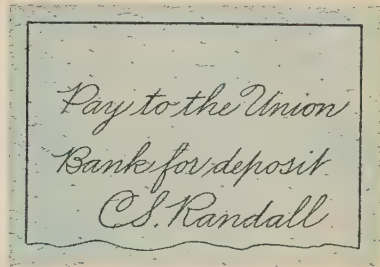 Pay to the Union
Bank for deposit
C.S. Randall